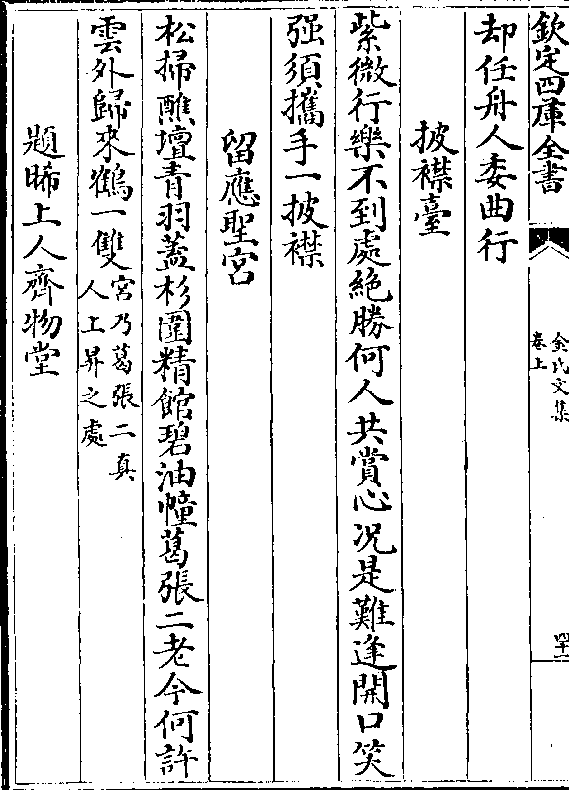 欽定四庫全書
金氏文集
卷上
四十一
却任舟人委曲行
披襟臺
紫微行樂不到處絶勝何人共賞心况是難逢開口笑
强須攜手一披襟
留應聖宮
松掃醮壇青羽蓋杉圍精館碧油幢葛張二老今何許
雲外歸來鶴一雙宮乃葛張二真
人上昇之處
題晞上人齊物堂